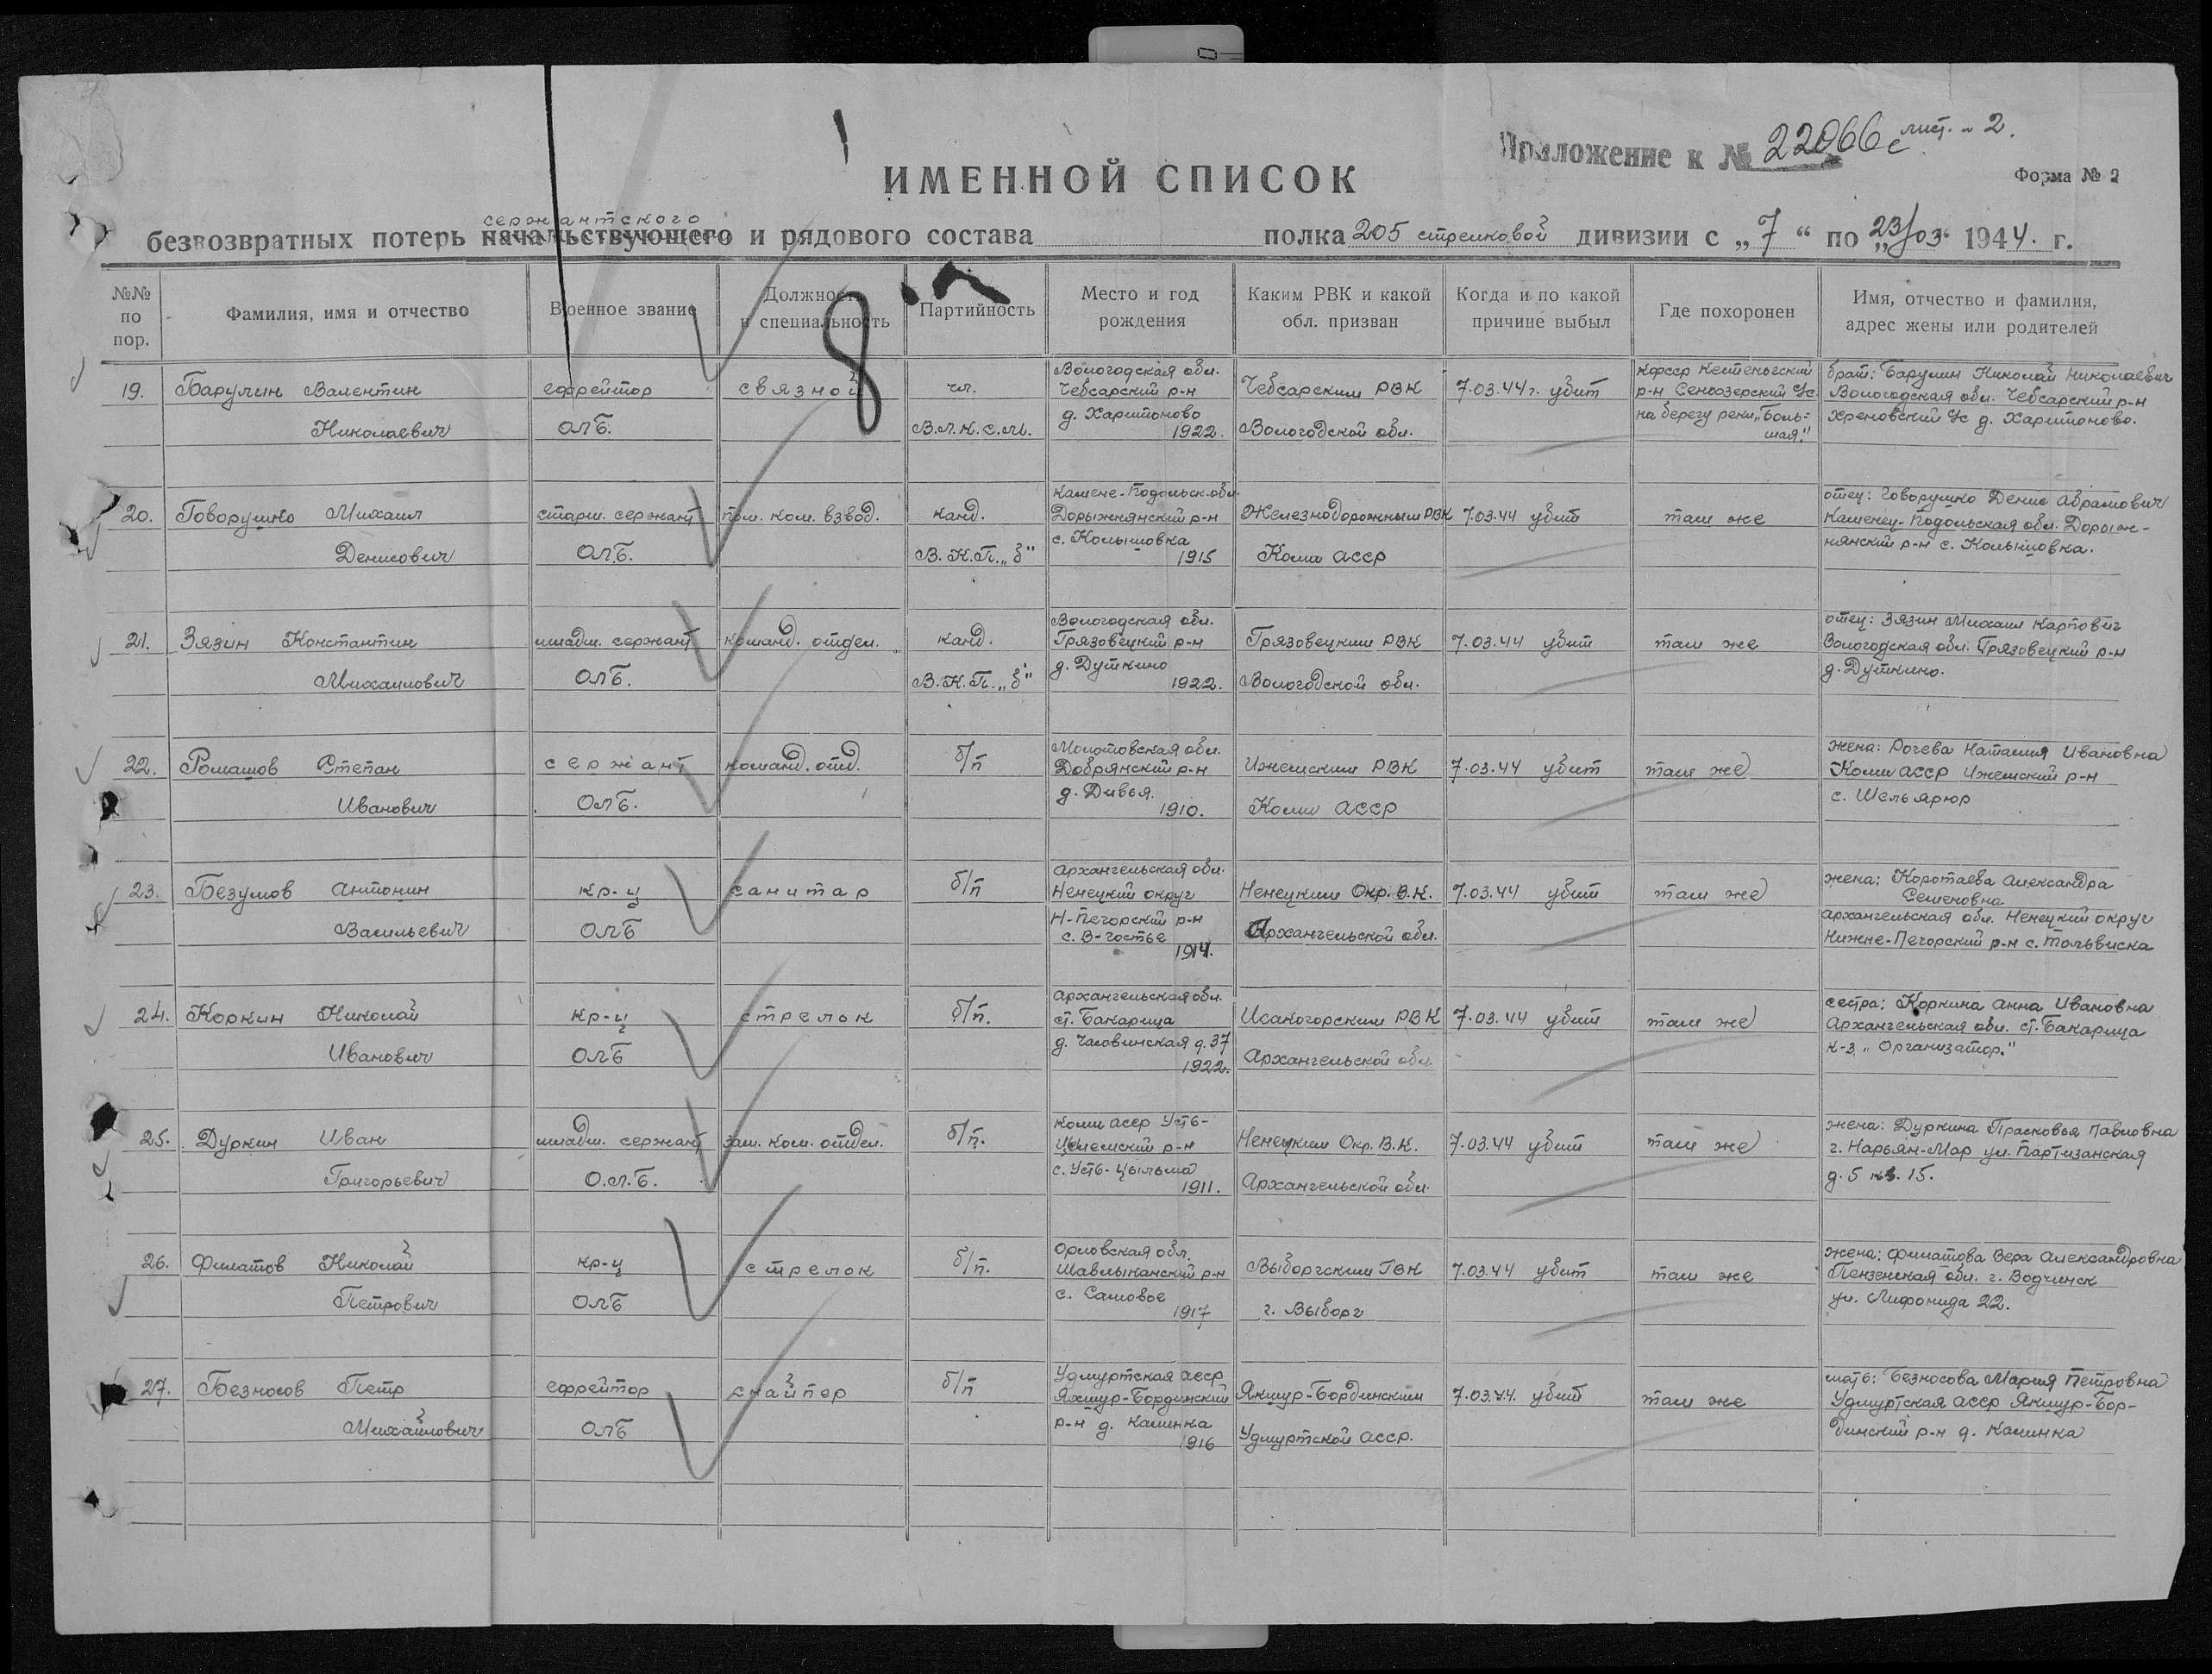 Приложение к № 22066с лист. - 2.
ИМЕННОЙ СПИСОК
Форма № 2
сержантского
безвозвратных потерь начальствующего и рядового состава полка 205 стрелковой дивизии с „7“ по „23/03“ 1944. г.
№№ по пор.
Фамилия, имя и отчество
Военное звание
Должность и специальность
Партийность
Место и год рождения
Каким РВК и какой обл. призван
Когда и по какой причине выбыл
Где похоронен
Имя, отчество и фамилия, адрес жены или родителей
19. Барулин Валентин Николаевич
ефрейтор ОЛБ.
связной
чл. В.Л.К.С.М.
Вологодская обл. Чебсарский р-н д. Харитоново 1922.
Чебсарским РВК Вологодской обл.
7.03.44 г. убит
КФССР Кестеньгский р-н Сеноозерский с/с на берегу реки „Большая."
брат: Барулин Николай Николаевич Вологодская обл. Чебсарский р-н Хреновский с/с д. Харитоново.
20. Говорушко Михаил Денисович
старш. сержант ОЛБ.
пом. ком. взвод.
канд. В.К.П. „б"
Камене-Подольск. обл. Дорыжнянский р-н с. Колышовка 1915
Железнодорожным РВК Коми АССР
7.03.44 убит
там же
отец: Говорушко Денис Абрамович Каменец-Подольская обл. Дорыжнянский р-н с. Колышовка.
21. Зязин Константин Михаилович
младш. сержант ОЛБ.
команд. отдел.
канд. В.К.П. „б"
Вологодская обл. Грязовецкий р-н д. Дуткино 1922.
Грязовецким РВК Вологодской обл.
7.03.44 убит
там же
отец: Зязин Михаил Карпович Вологодская обл. Грязовецкий р-н д. Дуткино.
22. Ромашов Степан Иванович
сержант ОЛБ.
команд. отд.
б/п
Молотовская обл. Добрянский р-н д. Дивья. 1910.
Ижемским РВК Коми АССР
7.03.44 убит
там же
жена: Рочева Наталия Ивановна Коми АССР Ижемский р-н с. Шельярюр
23. Безумов Антонин Васильевич
кр-ц ОЛБ
санитар
б/п
Архангельская обл. Ненецкий округ Н-Печорский р-н с. В-гостье 1914.
Ненецким Окр. В.К. Архангельской обл.
7.03.44 убит
там же
жена: Коротаева Александра Семеновна Архангельская обл. Ненецкий округ Нижне-Печорский р-н с. Тольвиска
24. Коркин Николай Иванович
кр-ц ОЛБ
стрелок
б/п.
Архангельская обл. ст. Бакарица д. Часовинская д. 37 1922.
Исакогорским РВК Архангельской обл.
7.03.44 убит
там же
сестра: Коркина Анна Ивановна Архангельская обл. ст. Бакарица к-з „Организатор."
25. Дуркин Иван Григорьевич
младш. сержант О.Л.Б.
зам. ком. отдел.
б/п.
Коми АССР Усть-Цилемский р-н с. Усть-Цыльма 1911.
Ненецким Окр. В.К. Архангельской обл.
7.03.44 убит
там же
жена: Дуркина Прасковья Павловна г. Нарьян-Мар ул. Партизанская д. 5 кв. 15.
26. Филатов Николай Петрович
кр-ц ОЛБ
стрелок
б/п.
Орловская обл. Шавлыканский р-н с. Самовое 1917
Выборгским ГВК г. Выборг
7.03.44 убит
там же
жена: Филатова Вера Александровна Пензенская обл. г. Водчинск ул. 22.
27. Безносов Петр Михайлович
ефрейтор ОЛБ
снайпер
б/п
Удмуртская АССР Якшур-Бординский р-н д. Калинка 1916
Якшур-Бординским Удмуртской АССР.
7.03.44. убит
там же
мать: Безносова Мария Петровна Удмуртская АССР Якшур-Бординский р-н д. Калинка